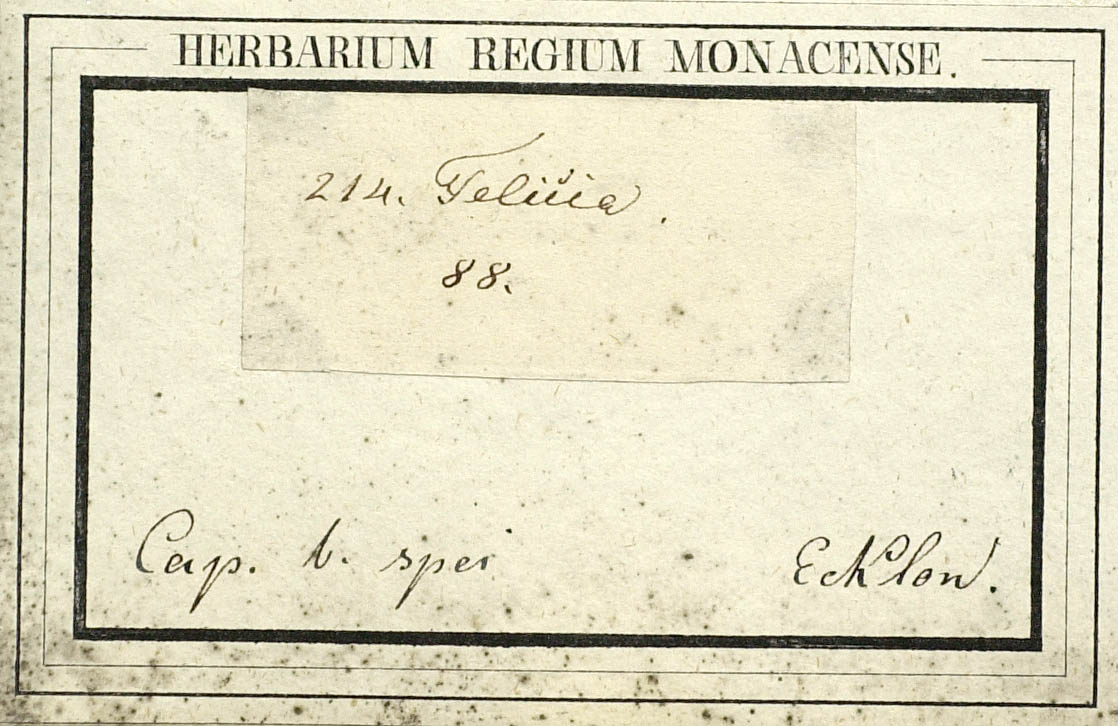 HERBARIUM REGIUM MONACENSE.
214. Felicia.
88.
Cap. b. spei
Ecklon.